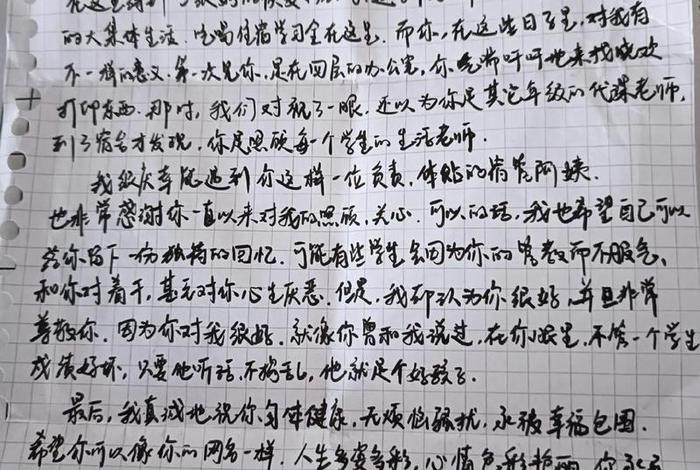 的大集体生活. 吃喝住宿学习全在这里. 而你, 在这些日子里, 对我有
不一样的意义. 第一次见你, 是在四层的办公室, 你气喘吁吁地来找晓欢
打印东西. 那时, 我们对视了一眼, 还以为你是其它年级的代课老师,
到了宿舍才发现, 你是照顾每一个学生的生活老师.
我很庆幸能遇到你这样一位负责, 体贴的宿管阿姨.
也非常感谢你一直以来对我的照顾, 关心. 可以的话, 我也希望自己可以
给你留下一份独特的回忆. 可能有些学生会因为你的管教而不服气,
和你对着干, 甚至对你心生厌恶. 但是, 我却认为你很好, 并且非常
尊敬你. 因为你对我很好. 就像你曾和我说过, 在你眼里, 不管一个学生
成绩好坏, 只要他听话, 不捣乱, 他就是个好孩子.
最后, 我真诚地祝你身体健康, 无烦恼骚扰, 永被幸福包围.
希望你可以像你的网名一样, 人生多姿多彩, 心情